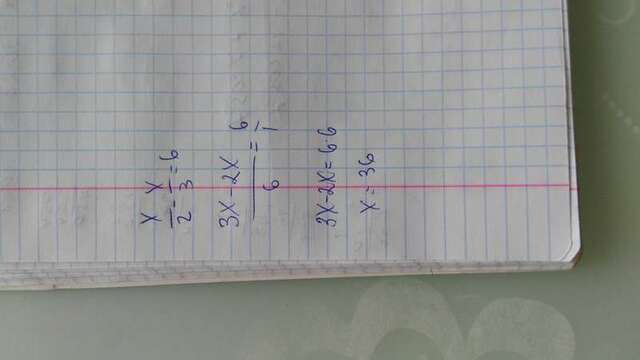 x/2 - x/3 = 6
3x-2x/6 = 6/1
3x-2x=6·6
x=36